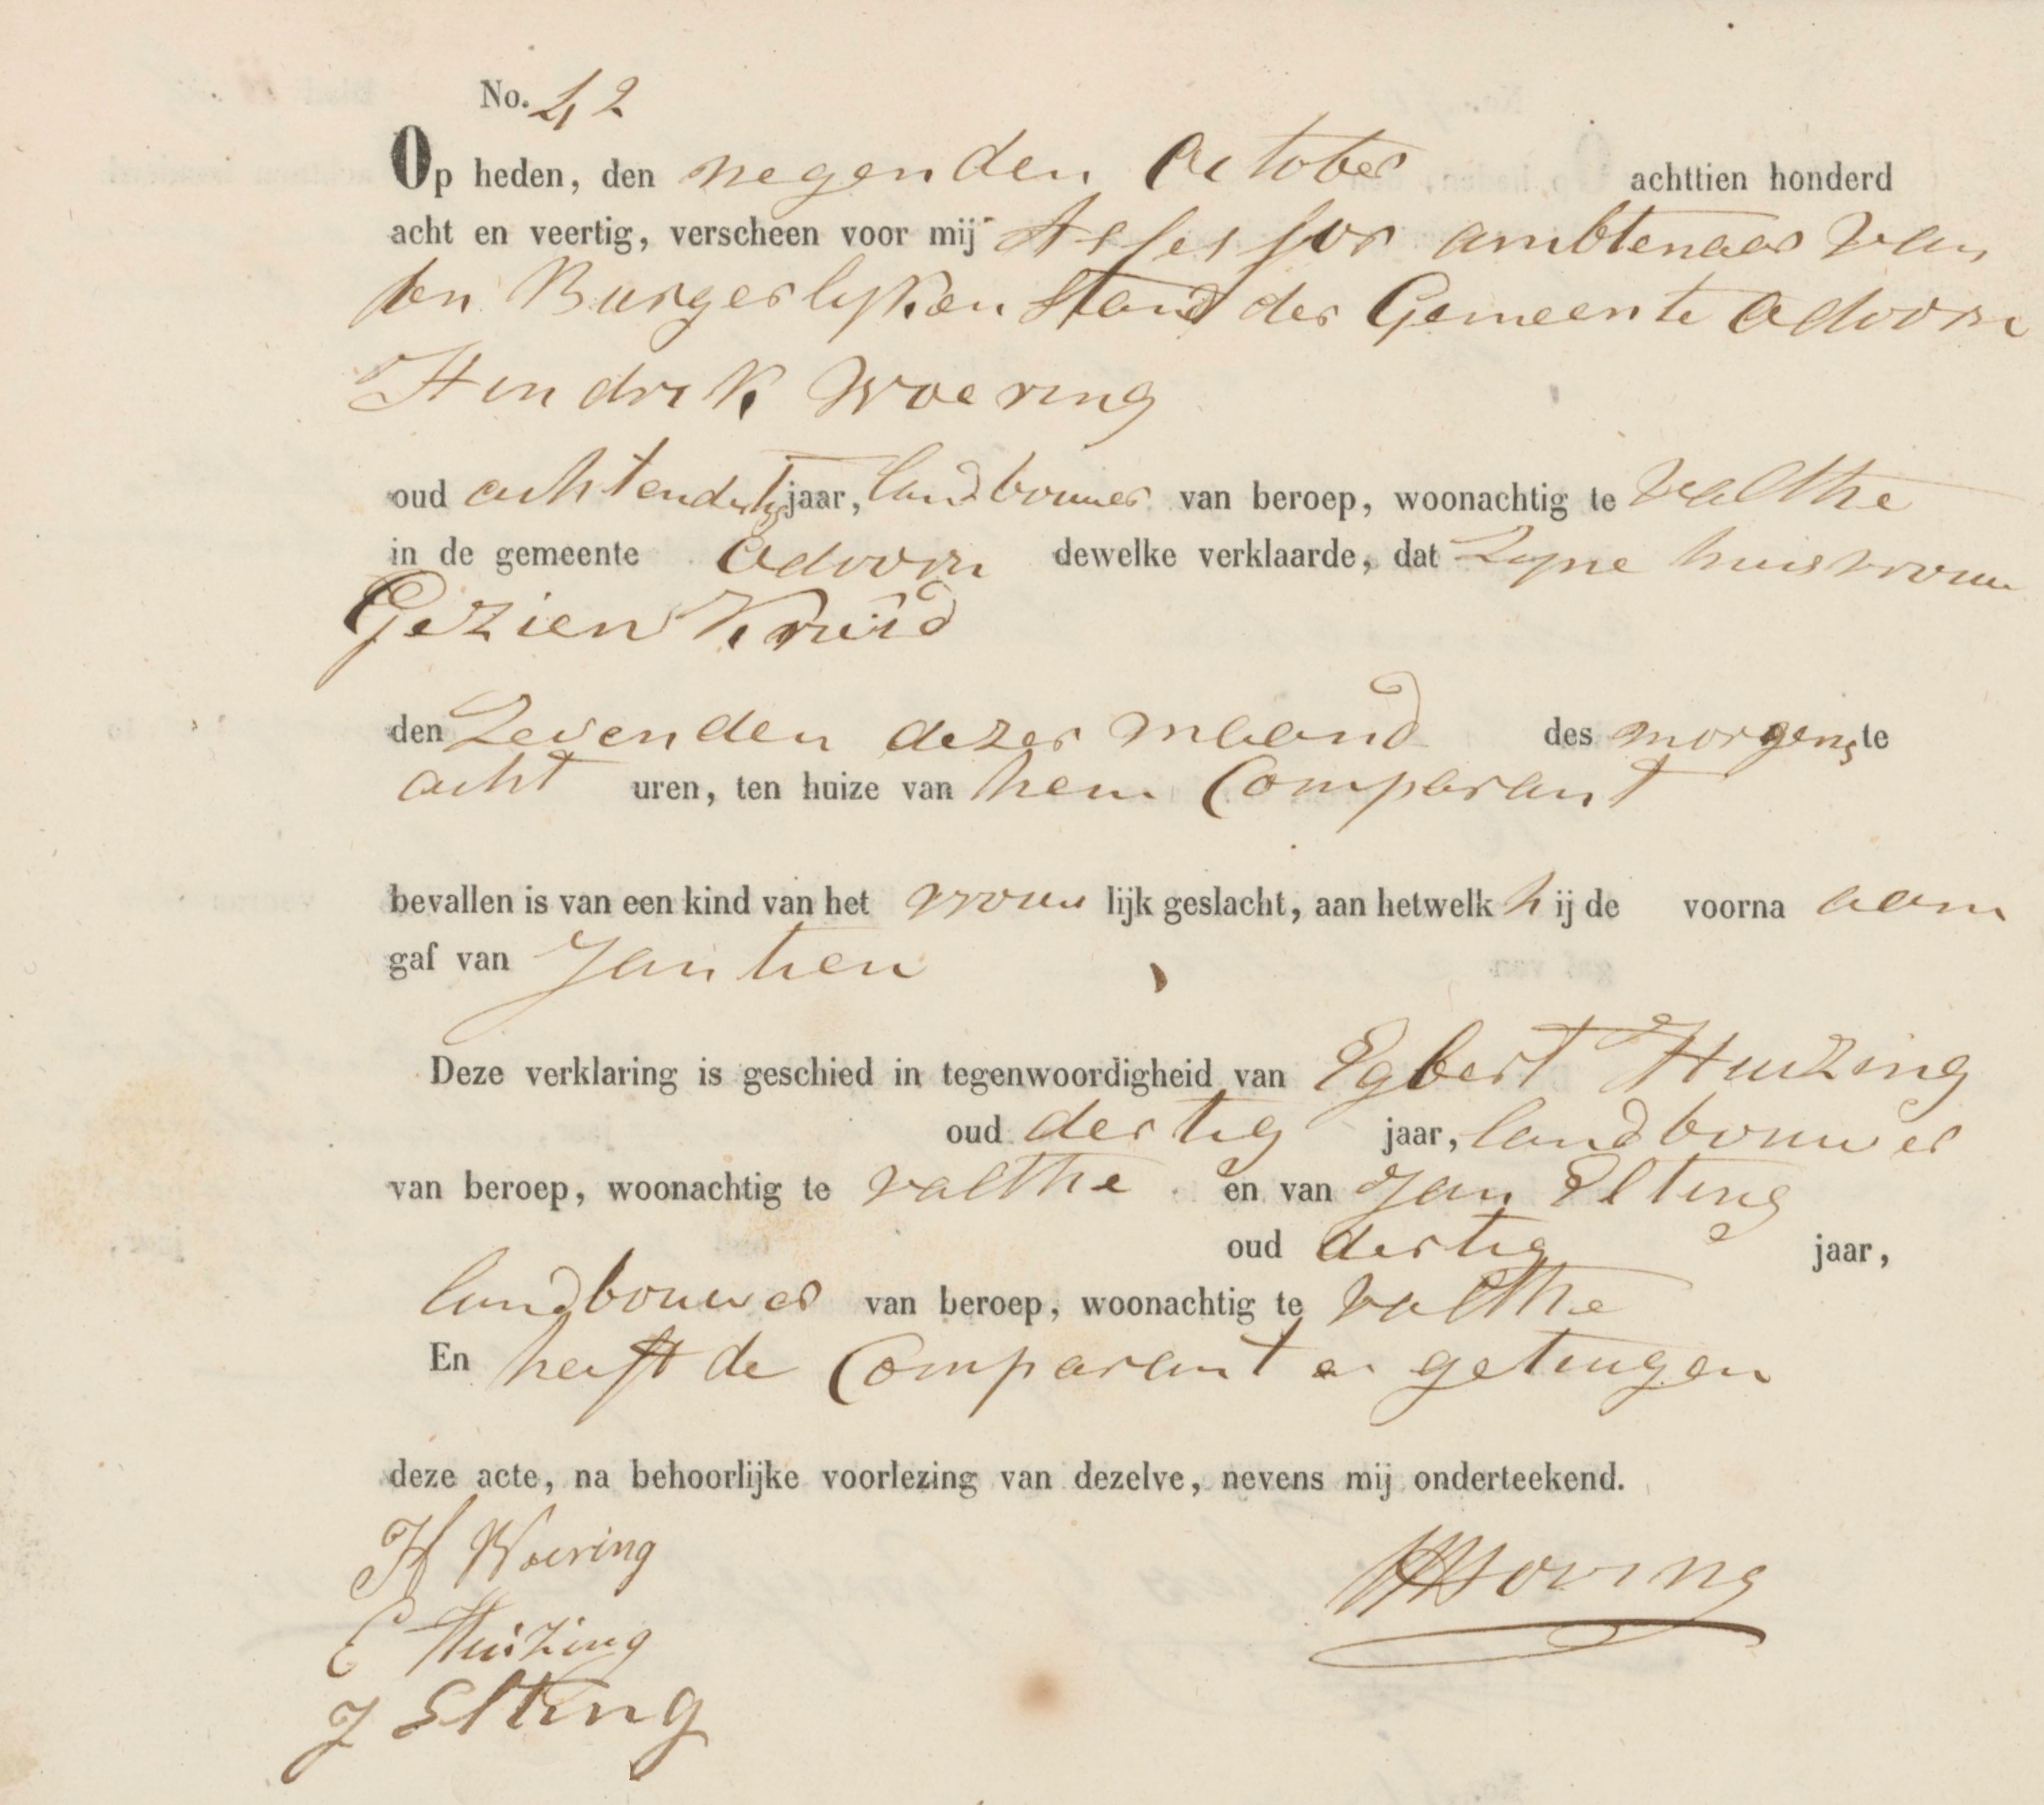 No. 42
Op heden, den negenden October achttien honderd
acht en veertig, verscheen voor mij Assessor ambtenaar van
den Burgerlyken Stand der Gemeente Odoorn
Hendrik Woering
oud achtendertig jaar, landbouwer van beroep, woonachtig te Valthe
in de gemeente Odoorn dewelke verklaarde, dat Zyne huisvrouw
Gezien Kruid
den Zevenden dezer maand des morgens te
acht uren, ten huize van hem Comparant
bevallen is van een kind van het vrouwlijk geslacht, aan hetwelk hij de voornaam
gaf van Jantien
Deze verklaring is geschied in tegenwoordigheid van Egbert Huizing
oud dertig jaar, landbouwer
van beroep, woonachtig te Valthe en van Jan Elting
oud dertig jaar,
landbouwer van beroep, woonachtig te Valthe
En heeft de Comparant en getuigen
deze acte, na behoorlijke voorlezing van dezelve, nevens mij onderteekend.
H Woering
E Huizing
J Elting